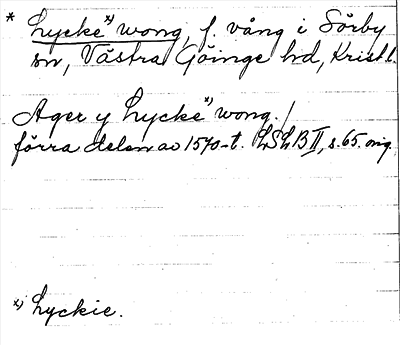 * Lycke*) wong, f. vång i Sörby
sn, Västra Göinge hd, Kristl.
Ager y Lycke*) wong. /
förra delen av 1570-t. LSLB II, s. 65. orig.
*) Lyckie.